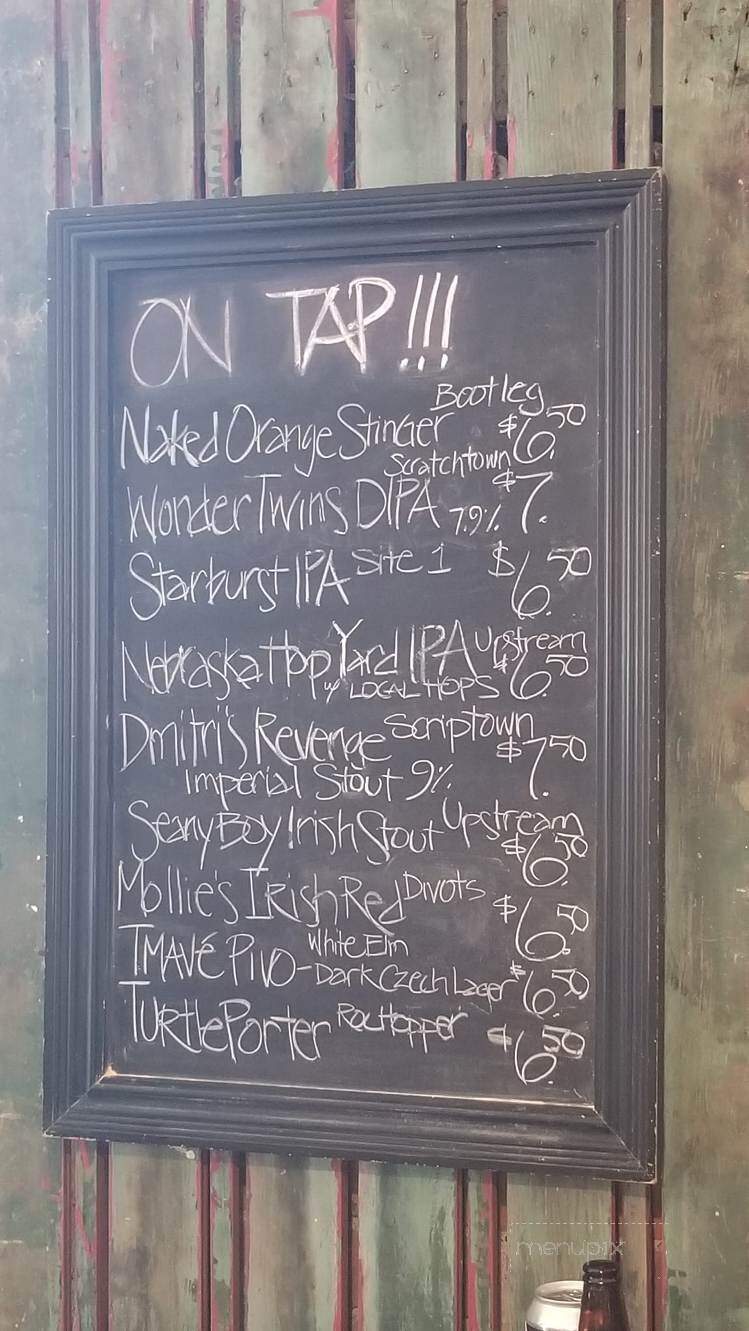 ON TAP!!!
Bootleg
Naked Orange Stinger $6.50
Scratchtown
Wonder Twins DIPA 7.9% $7.
Starburst IPA Site 1 $6.50
Nebraska Hop Yard IPA Upstream
w/ LOCAL HOPS $6.50
Dmitri's Revenge Scriptown
Imperial Stout 9% $7.50
Seany Boy Irish Stout Upstream
$6.50
Mollie's Irish Red Divots $6.50
White Elm
TMAVé PIVO - Dark Czech Lager $6.50
Turtle Porter Roc Hopper $6.50
menupix